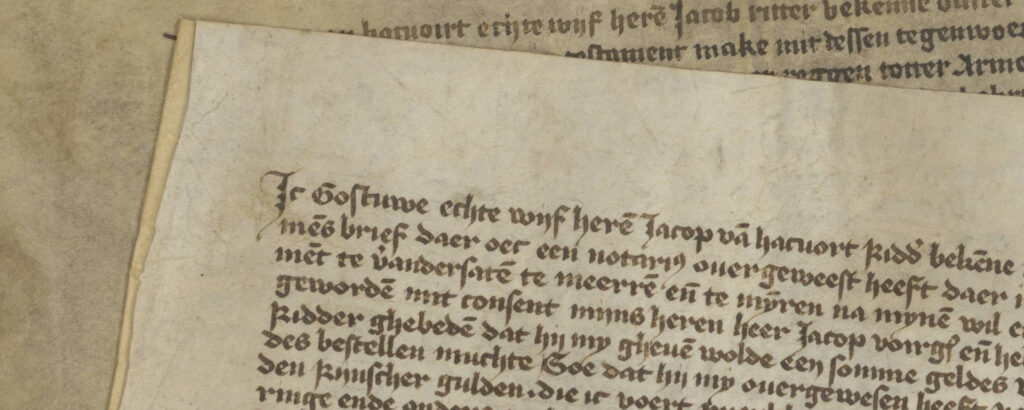 hacuoirt echte wijf herē Jacob ritter bekenne
testament make mit dessen tegenwoer
totter Arme
Ic Gostuwe echte wijf herē Jacop vā hacuort Ridd' bekēne
mēs brief daer oec een notari9 ouergeweest heeft daer i
mēt te v'andersatē te meerrē en̄ te mȳren na mynē wil e
gewordē mit consent myns heren heer Jacop voirgſ en̄ he
Ridder ghebedē dat hij my gheuē wolde een somme geldes
des bestellen muchte Soe dat hij my ouergewesen heeft
den Rijnscher gulden . die ic voert
ringe ende